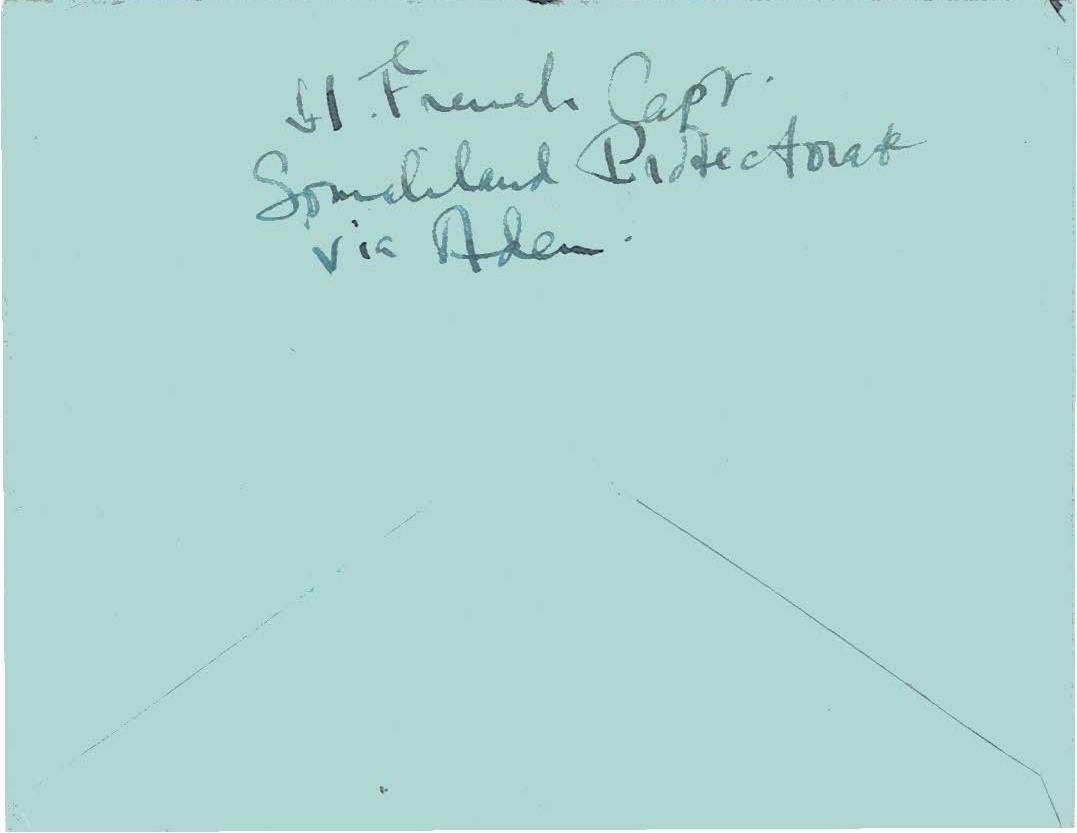 H. French Capt.
Somaliland Protectorate
via Aden.